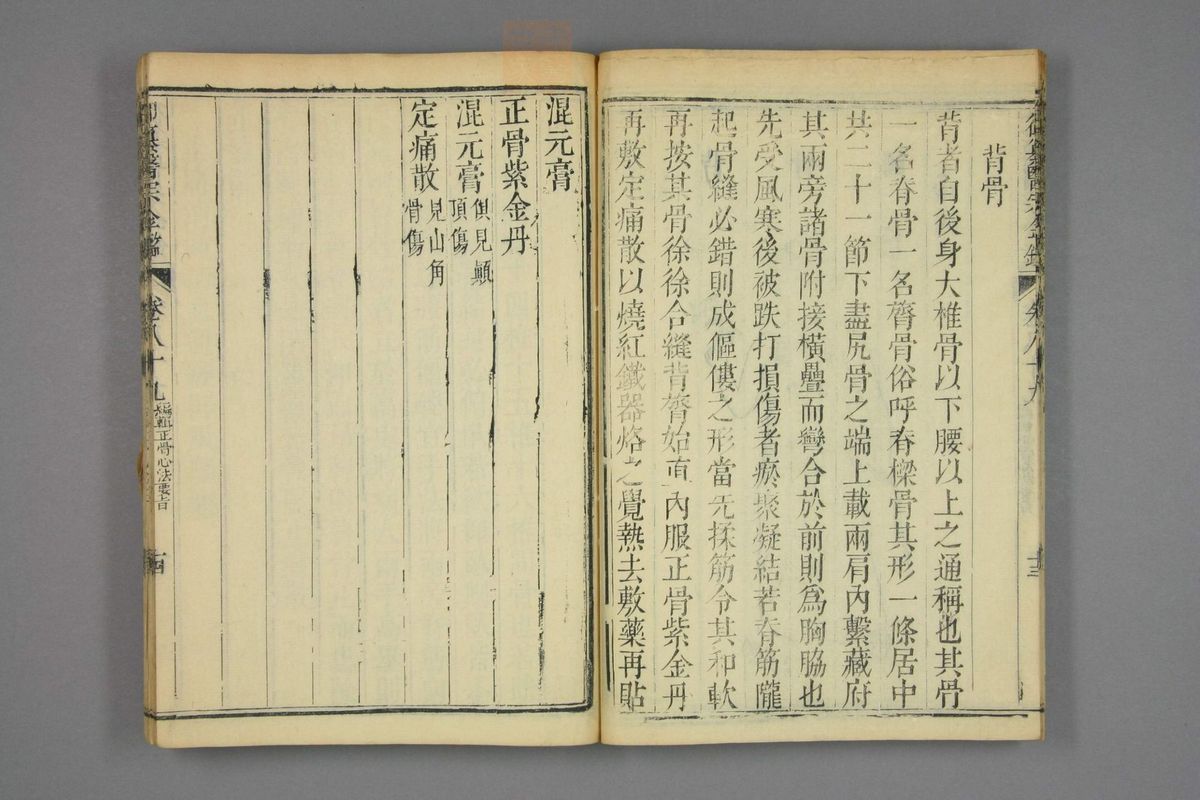 背骨
背者自後身大椎骨以下腰以上之通稱也其骨
一名脊骨一名膂骨俗呼脊樑骨其形一條居中
共二十一節下盡尻骨之端上載兩肩內繫藏府
其兩旁諸骨附接橫疊而彎合於前則爲胸脇也
先受風寒後被跌打損傷者瘀聚凝結若脊筋隴
起骨縫必錯則成傴僂之形當先揉筋令其和軟
再按其骨徐徐合縫背膂始直內服正骨紫金丹
再敷定痛散以燒紅鐵器烙之覺熱去敷藥再貼
混元膏
正骨紫金丹
混元膏 俱見顚
頂傷
定痛散 見山角
骨傷
御纂醫宗金鑑
卷八十九
十三
御纂醫宗金鑑
卷八十九
編輯正骨心法要旨
十四